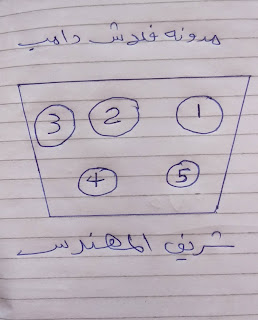 مدونه فلاش دامب
3 2 1
4 5
شريف المهندس